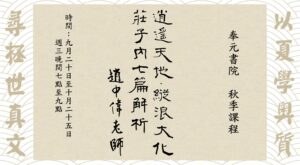 以夏學奧質
尋拯世真文
奉元書院 秋季課程
逍遙天地·縱浪大化
莊子內七篇解析
趙中偉老師
時間：九月二十日至十月二十五日
週三晚間七點至九點